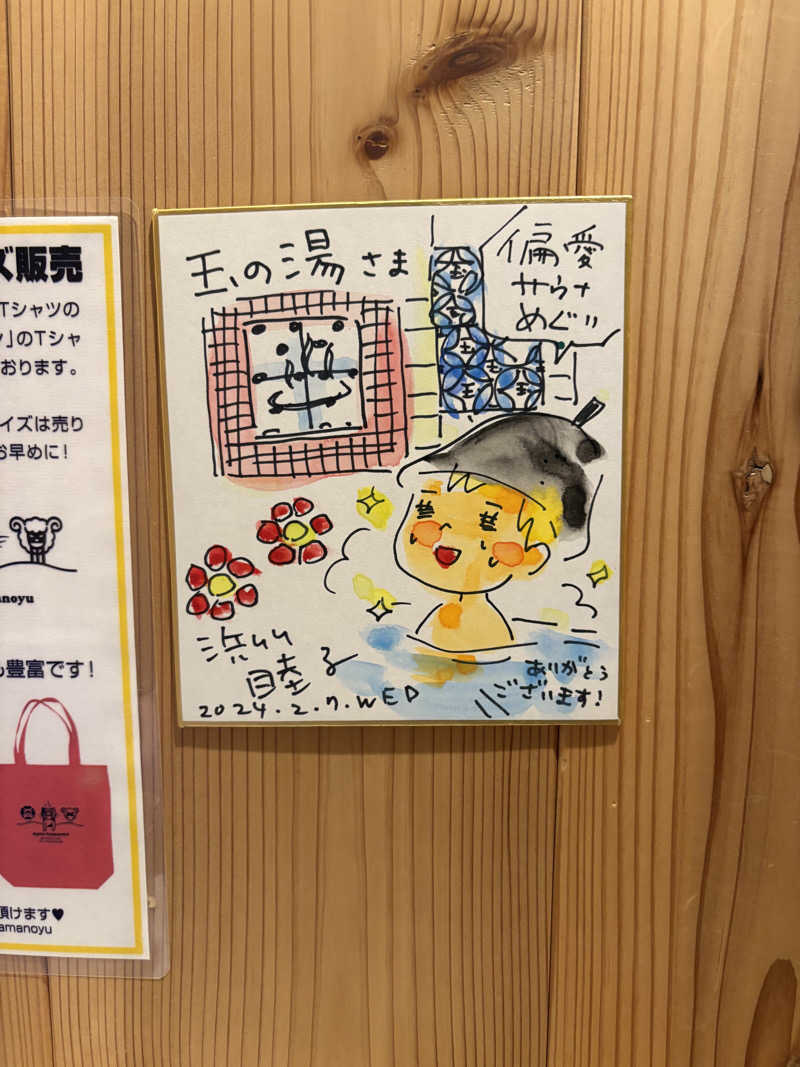 ズ販売
Tシャツの
」のTシャ
おります。
イズは売り
お早めに!
anoyu
も豊富です!
頂けます♥
amanoyu
玉の湯さま
偏愛
サウナ
めぐり
ありがとう
ございます!
2024.2.7.WED